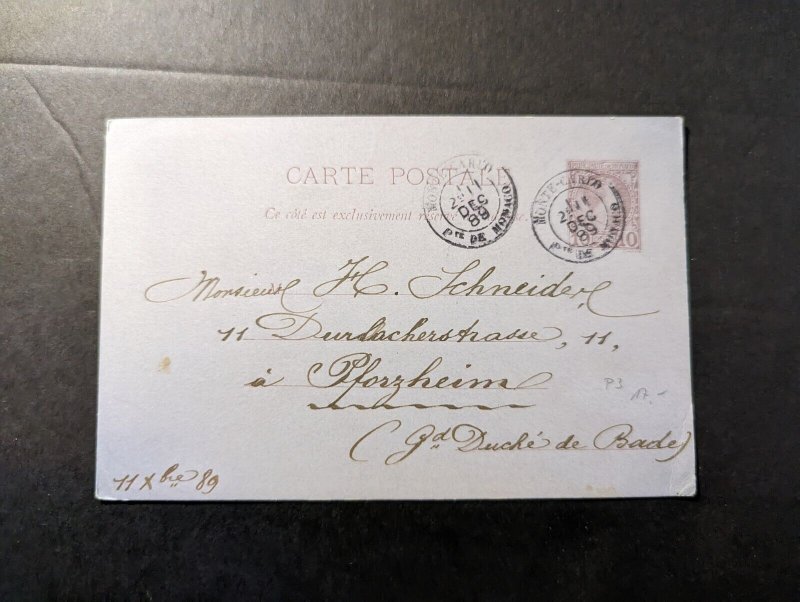 CARTE POSTALE
Ce côté est exclusivement réservé
MONTE-CARLO
11
DEC
89
Pté DE MONACO
MONTE-CARLO
DEC
89
Pté DE MONACO
10
Monsieur H. Schneider,
11 Durlacherstrasse, 11,
à Pforzheim
P3
17.-
(Gd Duché de Bade)
11 Xbre 89